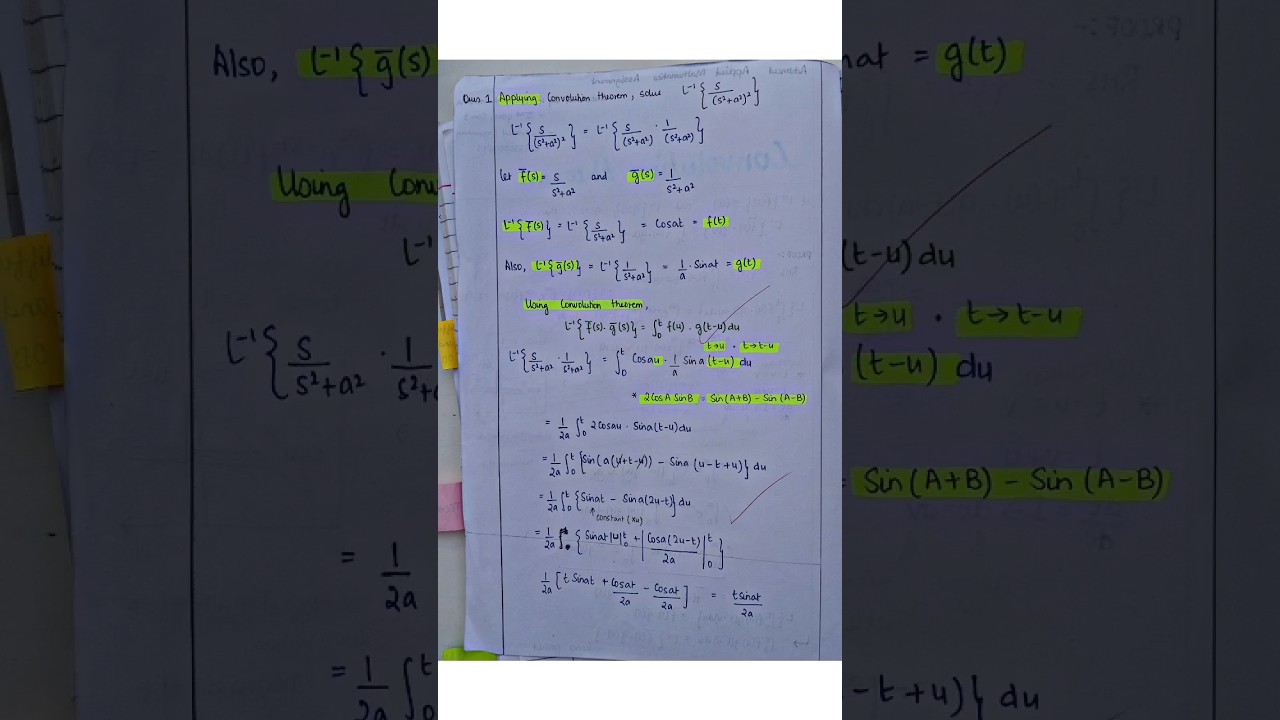 Ques 1 Applying Convolution theorem, solve L⁻¹{s/(s²+a²)²}
L⁻¹{s/(s²+a²)²} = L⁻¹{s/(s²+a²) · 1/(s²+a²)}
let f̅(s) = s/s²+a² and g̅(s) = 1/s²+a²
L⁻¹{f̅(s)} = L⁻¹{s/s²+a²} = Cosat = f(t)
Also, L⁻¹{g̅(s)} = L⁻¹{1/s²+a²} = 1/a · Sinat = g(t)
Using Convolution theorem,
L⁻¹{f̅(s) · g̅(s)} = ∫₀ᵗ f(u) · g(t-u) du
t→u · t→t-u
L⁻¹{s/s²+a² · 1/s²+a²} = ∫₀ᵗ Cosau · 1/a Sina (t-u) du
* 2CosA SinB = Sin(A+B) - Sin(A-B)
= 1/2a ∫₀ᵗ 2Cosau · Sina(t-u)du
= 1/2a ∫₀ᵗ {Sin(a(u+t-u)) - Sina (u-t+u)} du
= 1/2a ∫₀ᵗ {Sinat - Sina(2u-t)} du
constant (xu)
= 1/2a { Sinat |u|₀ᵗ + |Cosa(2u-t)/2a|₀ᵗ }
1/2a [t Sinat + Cosat/2a - Cosat/2a] = tsinat/2a
Also, L⁻¹{g̅(s)
nat = g(t)
Using Conv
L⁻¹
(t-u)du
t→u · t→t-u
L⁻¹{s/s²+a² · 1/s²+
(t-u) du
= Sin(A+B) - Sin(A-B)
= 1/2a
= 1/2a ∫₀ᵗ
-t+u)} du